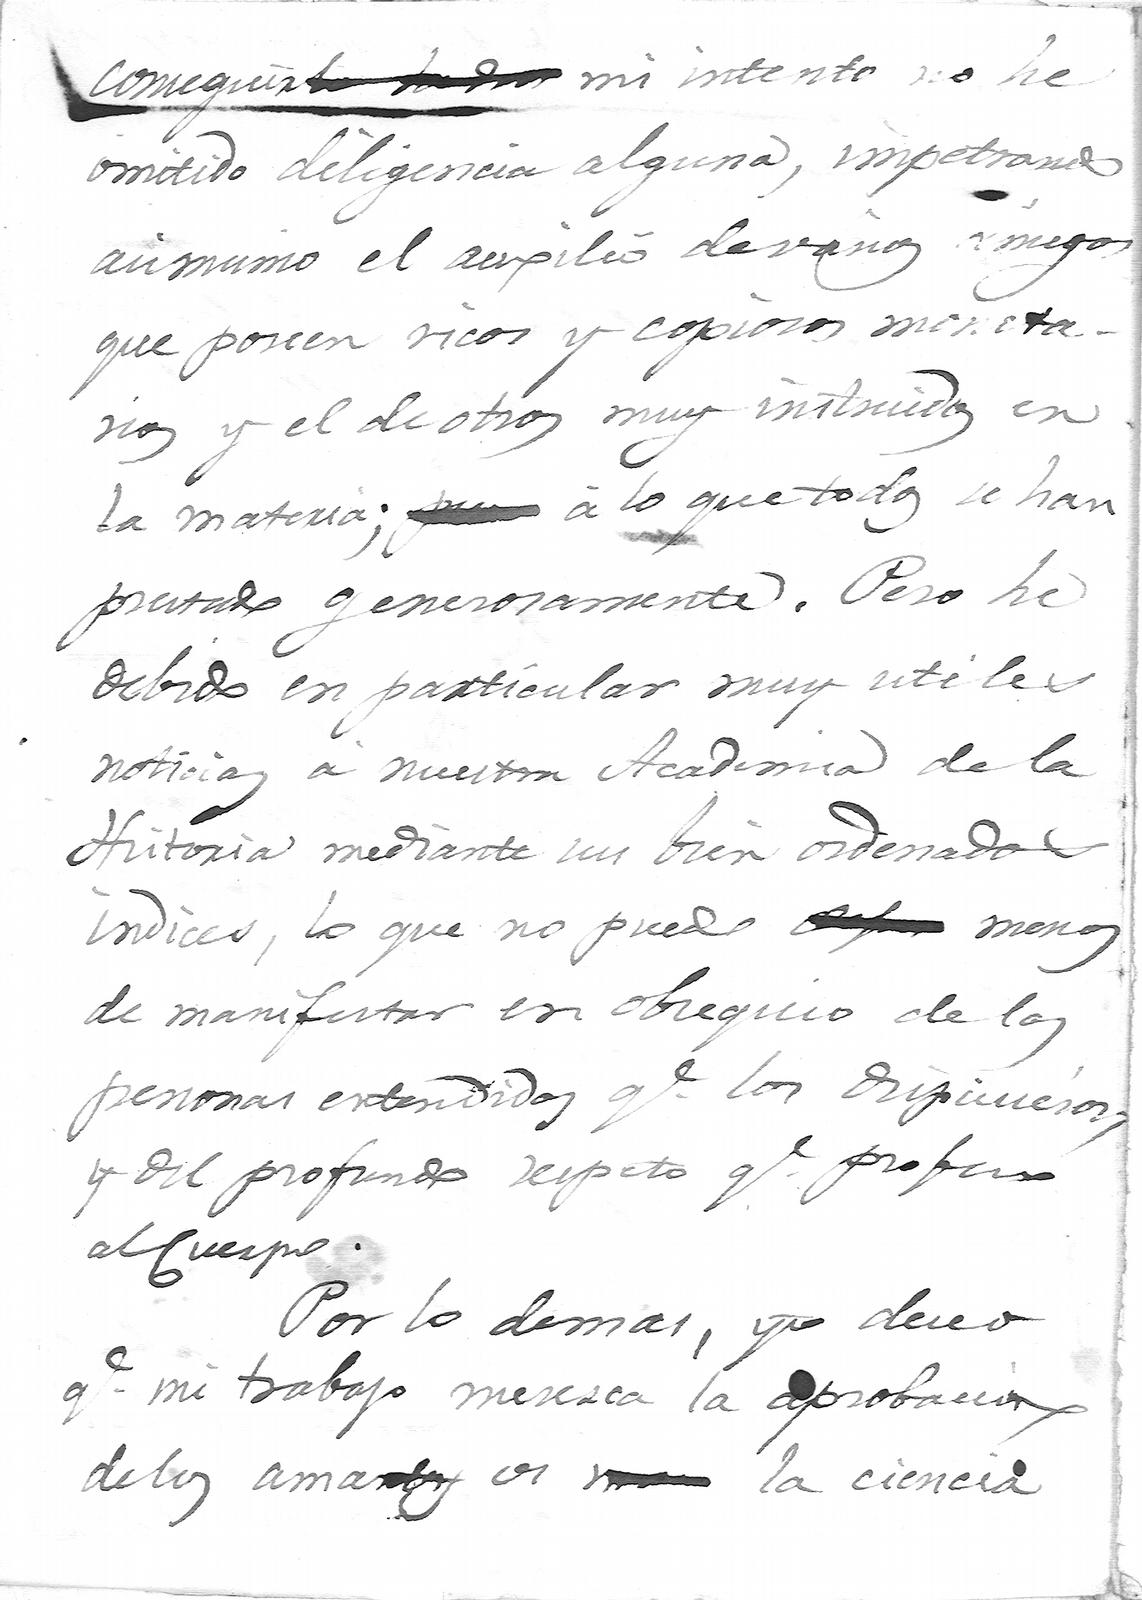 conseguir mi intento no he
omitido diligencia alguna, impetrando
asimismo el auxilio de varios amigos
que poseen ricos y copiosos moneta-
rios y el de otros muy instruidos en
la materia; à lo que todos se han
prestado generosamente. Pero he
debido en particular muy utiles
noticias à nuestra Academia de la
Historia mediante sus bien ordenados
indices, lo que no puedo menos
de manifestar en obsequio de las
personas entendidas qe. los dispusieron,
y del profundo respeto qe. profeso
al Cuerpo.
Por lo demas, yo deseo
qe. mi trabajo meresca la aprobacion
de los amantes de la ciencia